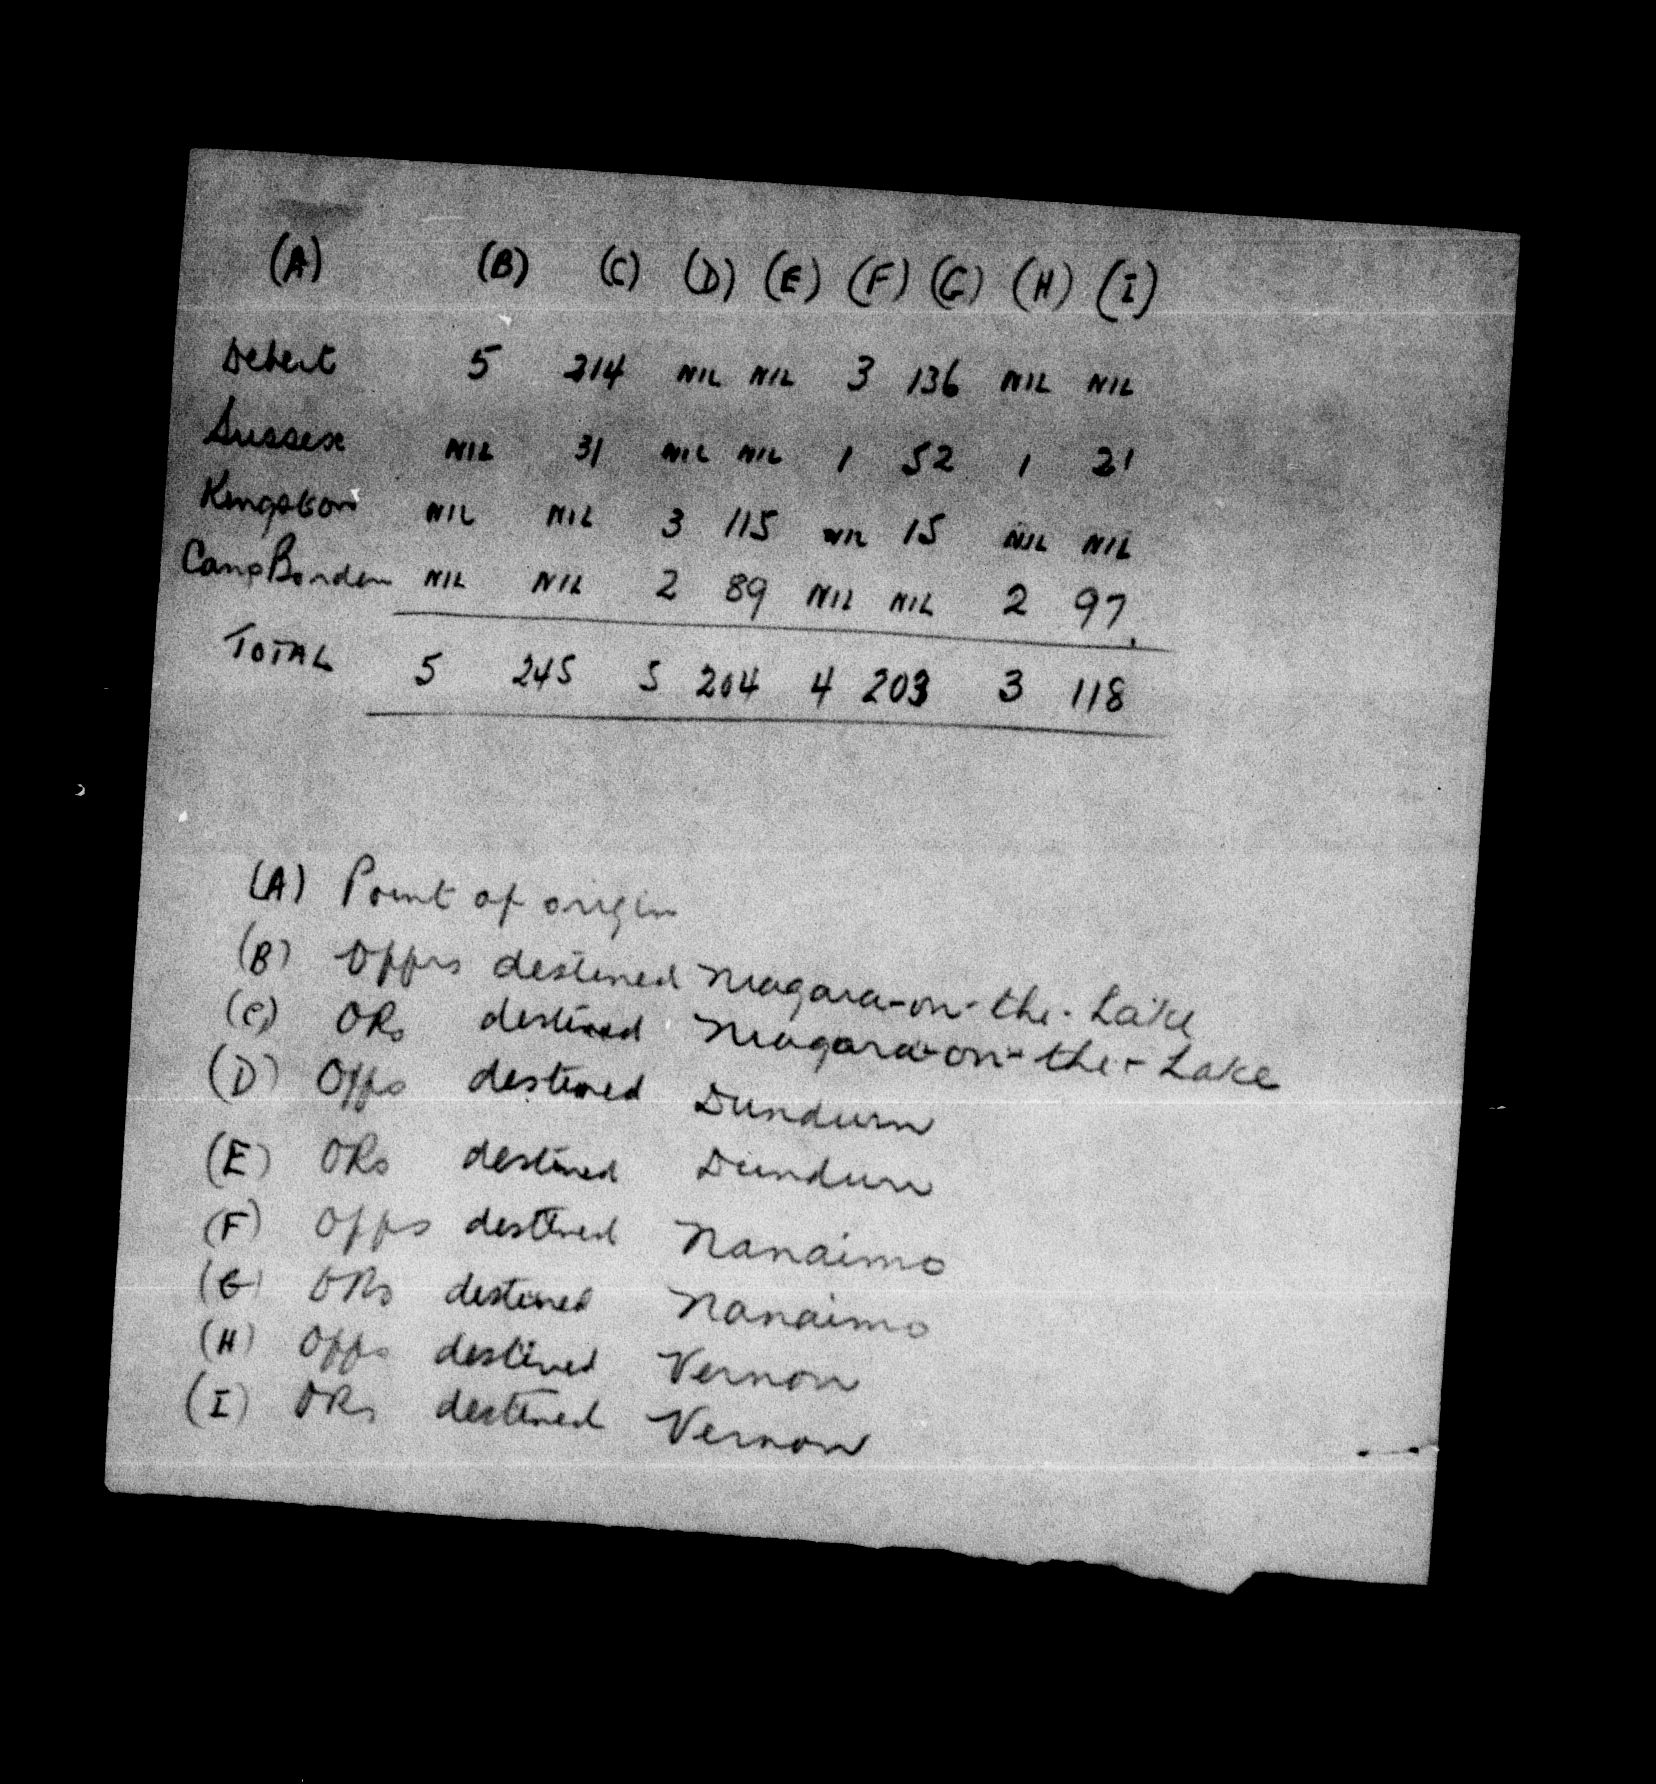 (A) (B) (C) (D) (E) (F) (G) (H) (I)
Debert 5 214 NIL NIL 3 136 NIL NIL
Sussex NIL 31 NIL NIL 1 52 1 21
Kingston NIL NIL 3 115 NIL 15 NIL NIL
Camp Borden NIL NIL 2 89 NIL NIL 2 97
TOTAL 5 245 5 204 4 203 3 118
(A) Point of origin
(B) Offrs destined Niagara-on-the-Lake
(C) ORs destined Niagara-on-the-Lake
(D) Offs destined Dundurn
(E) ORs destined Dundurn
(F) Offs destined Nanaimo
(G) ORs destined Nanaimo
(H) Offs destined Vernon
(I) ORs destined Vernon